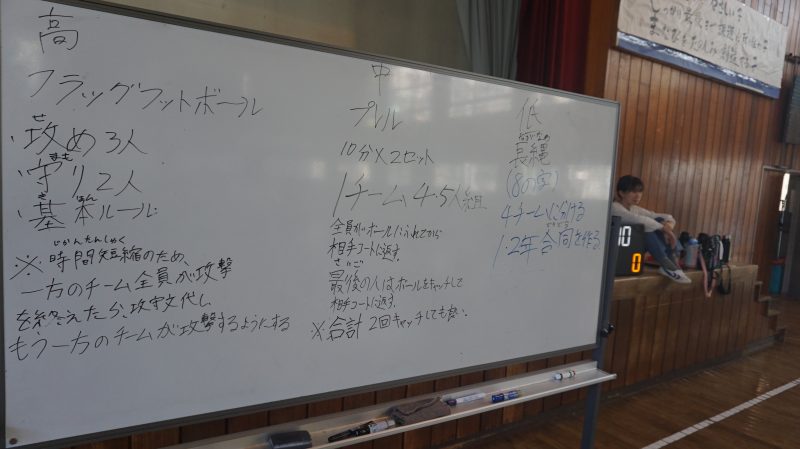 高
フラッグフットボール
・攻め3人
せ
・守り2人
まも
・基本ルール
き ほん
※時間短縮のため、
じかんたんしゅく
一方のチーム全員が攻撃
を終えたら、攻守交代し
もう一方のチームが攻撃するようにする
中
プレル
10分×2セット
1チーム4.5人組
全員がボールにふれてから
相手コートに返す。
さいご
最後の人はボールをキャッチして
相手コートに返す。
※合計 2回キャッチしても良い。
低
ながなわ
長縄
(8の字)
4チームに分ける
1.2年合同を作る。
10
0